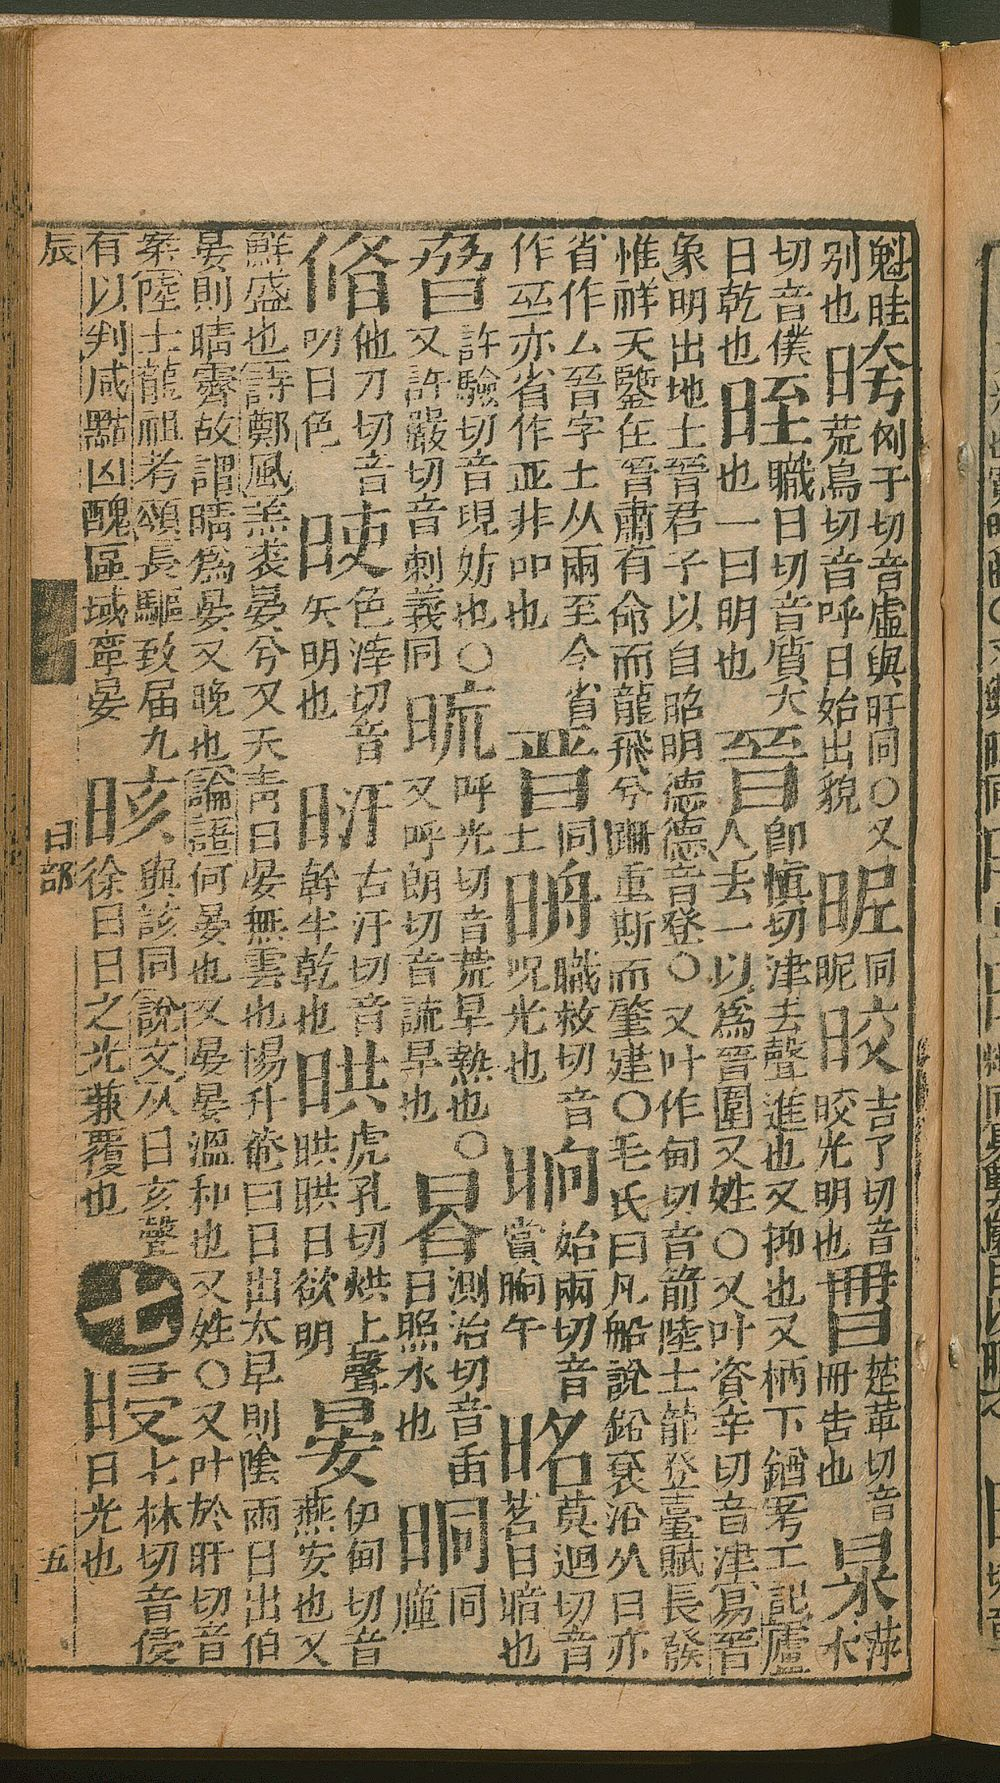 魁眭晇匈于切音虛與旴同○又昵同晈吉了切音𣌧楚革切音昹萍
別也荒鳥切音呼日始出貌昵皎光明也冊告也水
切音僕晊職日切音質大晉即愼切津去聲進也又抑也又柄下鐏考工記廬
日乾也也一曰明也人去一以爲晉圍又姓○又叶資辛切音津易晉
象明出地土晉君子以自昭明德德音登○又叶作甸切音箭陸士龍登臺賦長發
惟祥天鑒在晉肅有命而龍飛兮跚重斯而肇建○毛氏曰凡船說鉛袞沿从日亦
省作厶晉字土从兩至今省晋同晭職救切音晌始兩切音䀲莫迥切音
作亦省作亚非吅也土呪光也賞晌午茗日暗也
許驗切音現妨也○㫛呼光切音荒旱熱也○測治切音臿晍同
又許嚴切音刺義同又呼朗切音謊旱也日照水也曈
他刀切音色滓切音古汗切音晎虎孔切烘上聲晏伊甸切音
叨日色矢明也幹半乾也晎晎日欲明燕安也又
鮮盛也詩鄭風羔裘晏兮又天靑日晏無雲也楊升菴曰日出太早則陰雨日出伯
晏則晴霽故謂晴爲晏又晚也論語何晏也又晏晏溫和也又姓○又叶於肝切音
案陸士龍祖考頌長驅致届九晐與該同說文从日亥聲七林切音侵
有以判咸黜凶醜區域寧晏徐曰日之光兼覆也七日光也
辰 日部 五